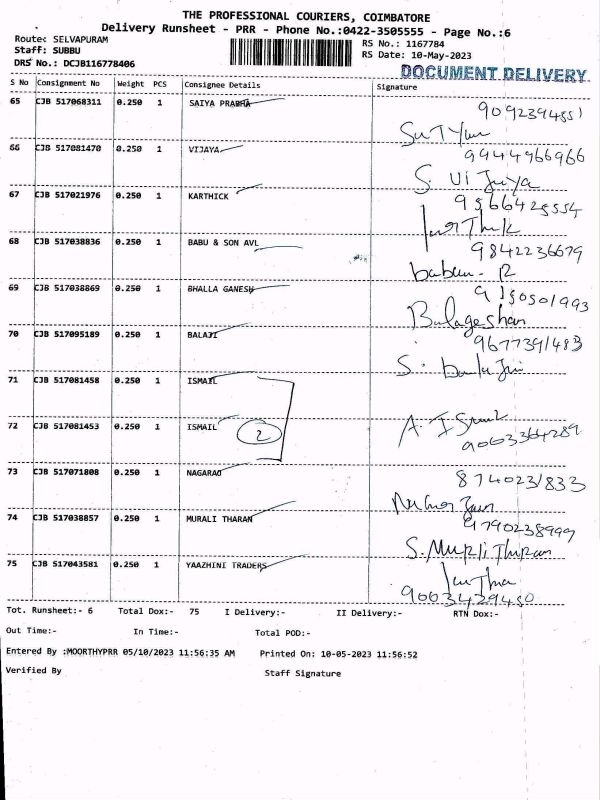 THE PROFESSIONAL COURIERS, COIMBATORE
Delivery Runsheet - PRR - Phone No.:0422-3505555 - Page No.:6
Route: SELVAPURAM
RS No.: 1167784
Staff: SUBBU
RS Date: 10-May-2023
DRS No.: DCJB116778406
DOCUMENT DELIVERY
S No Consignment No Weight PCS Consignee Details Signature
65 CJB 517068311 0.250 1 SAIYA PRABHA
66 CJB 517081470 0.250 1 VIJAYA 9944966966
67 CJB 517021976 0.250 1 KARTHICK
68 CJB 517038836 0.250 1 BABU & SON AVL 9842236679
69 CJB 517038869 0.250 1 BHALLA GANESH
Balageshan
70 CJB 517095189 0.250 1 BALAJI 9677391483
71 CJB 517081458 0.250 1 ISMAIL
72 CJB 517081453 0.250 1 ISMAIL 2 9003364289
73 CJB 517071808 0.250 1 NAGARAO 8740231833
74 CJB 517038857 0.250 1 MURALI THARAN 9790238999
75 CJB 517043581 0.250 1 YAAZHINI TRADERS
9003429480
Tot. Runsheet:- 6 Total Dox:- 75 I Delivery:- II Delivery:- RTN Dox:-
Out Time:- In Time:- Total POD:-
Entered By :MOORTHYPRR 05/10/2023 11:56:35 AM Printed On: 10-05-2023 11:56:52
Verified By Staff Signature